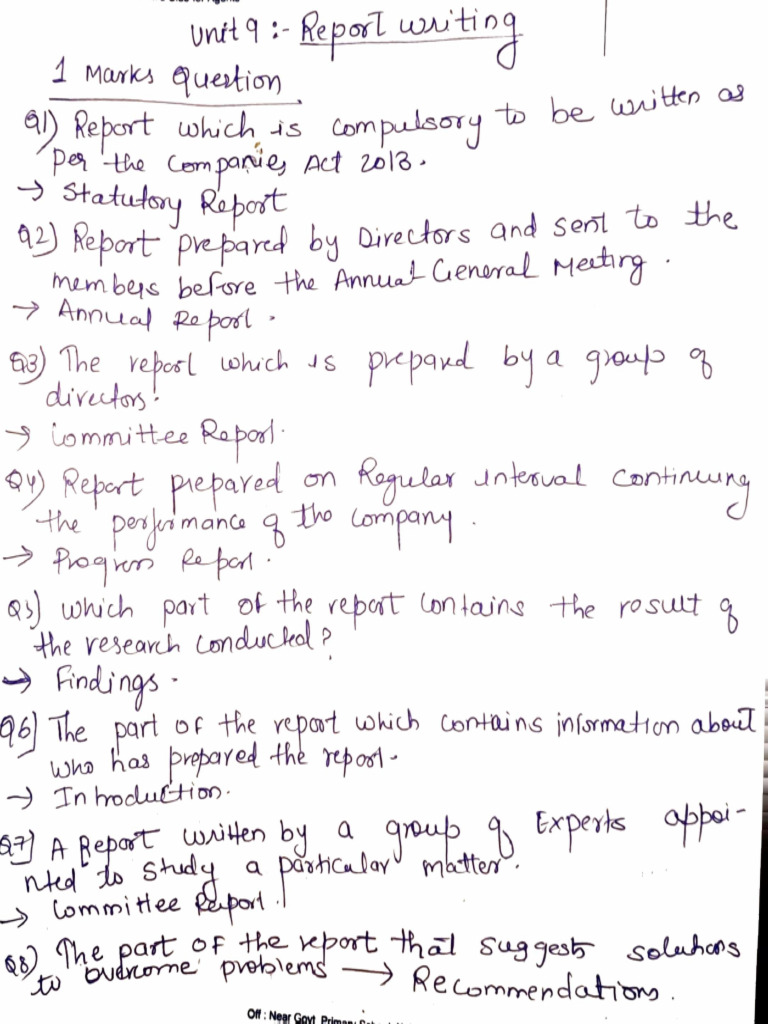 Unit 9 :- Report writing
1 Marks Question
Q1) Report which is compulsory to be written as
Per the Companies Act 2013.
→ Statutory Report
Q2) Report prepared by Directors and sent to the
members before the Annual General Meeting.
→ Annual Report.
Q3) The report which is prepard by a group of
directors.
→ Committee Report.
Q4) Report prepared on Regular interval continuing
the performance of the company.
→ Progress Report.
Q5) which part of the report contains the result of
the research conducted?
→ Findings.
Q6) The part of the report which contains information about
who has prepared the report.
→ Introduction.
Q7) A Report written by a group of Experts appoi-
nted to study a particular matter.
→ Committee Report.
Q8) The part of the report that suggests solutions
to overcome problems → Recommendations.
Off : Near Govt Primary